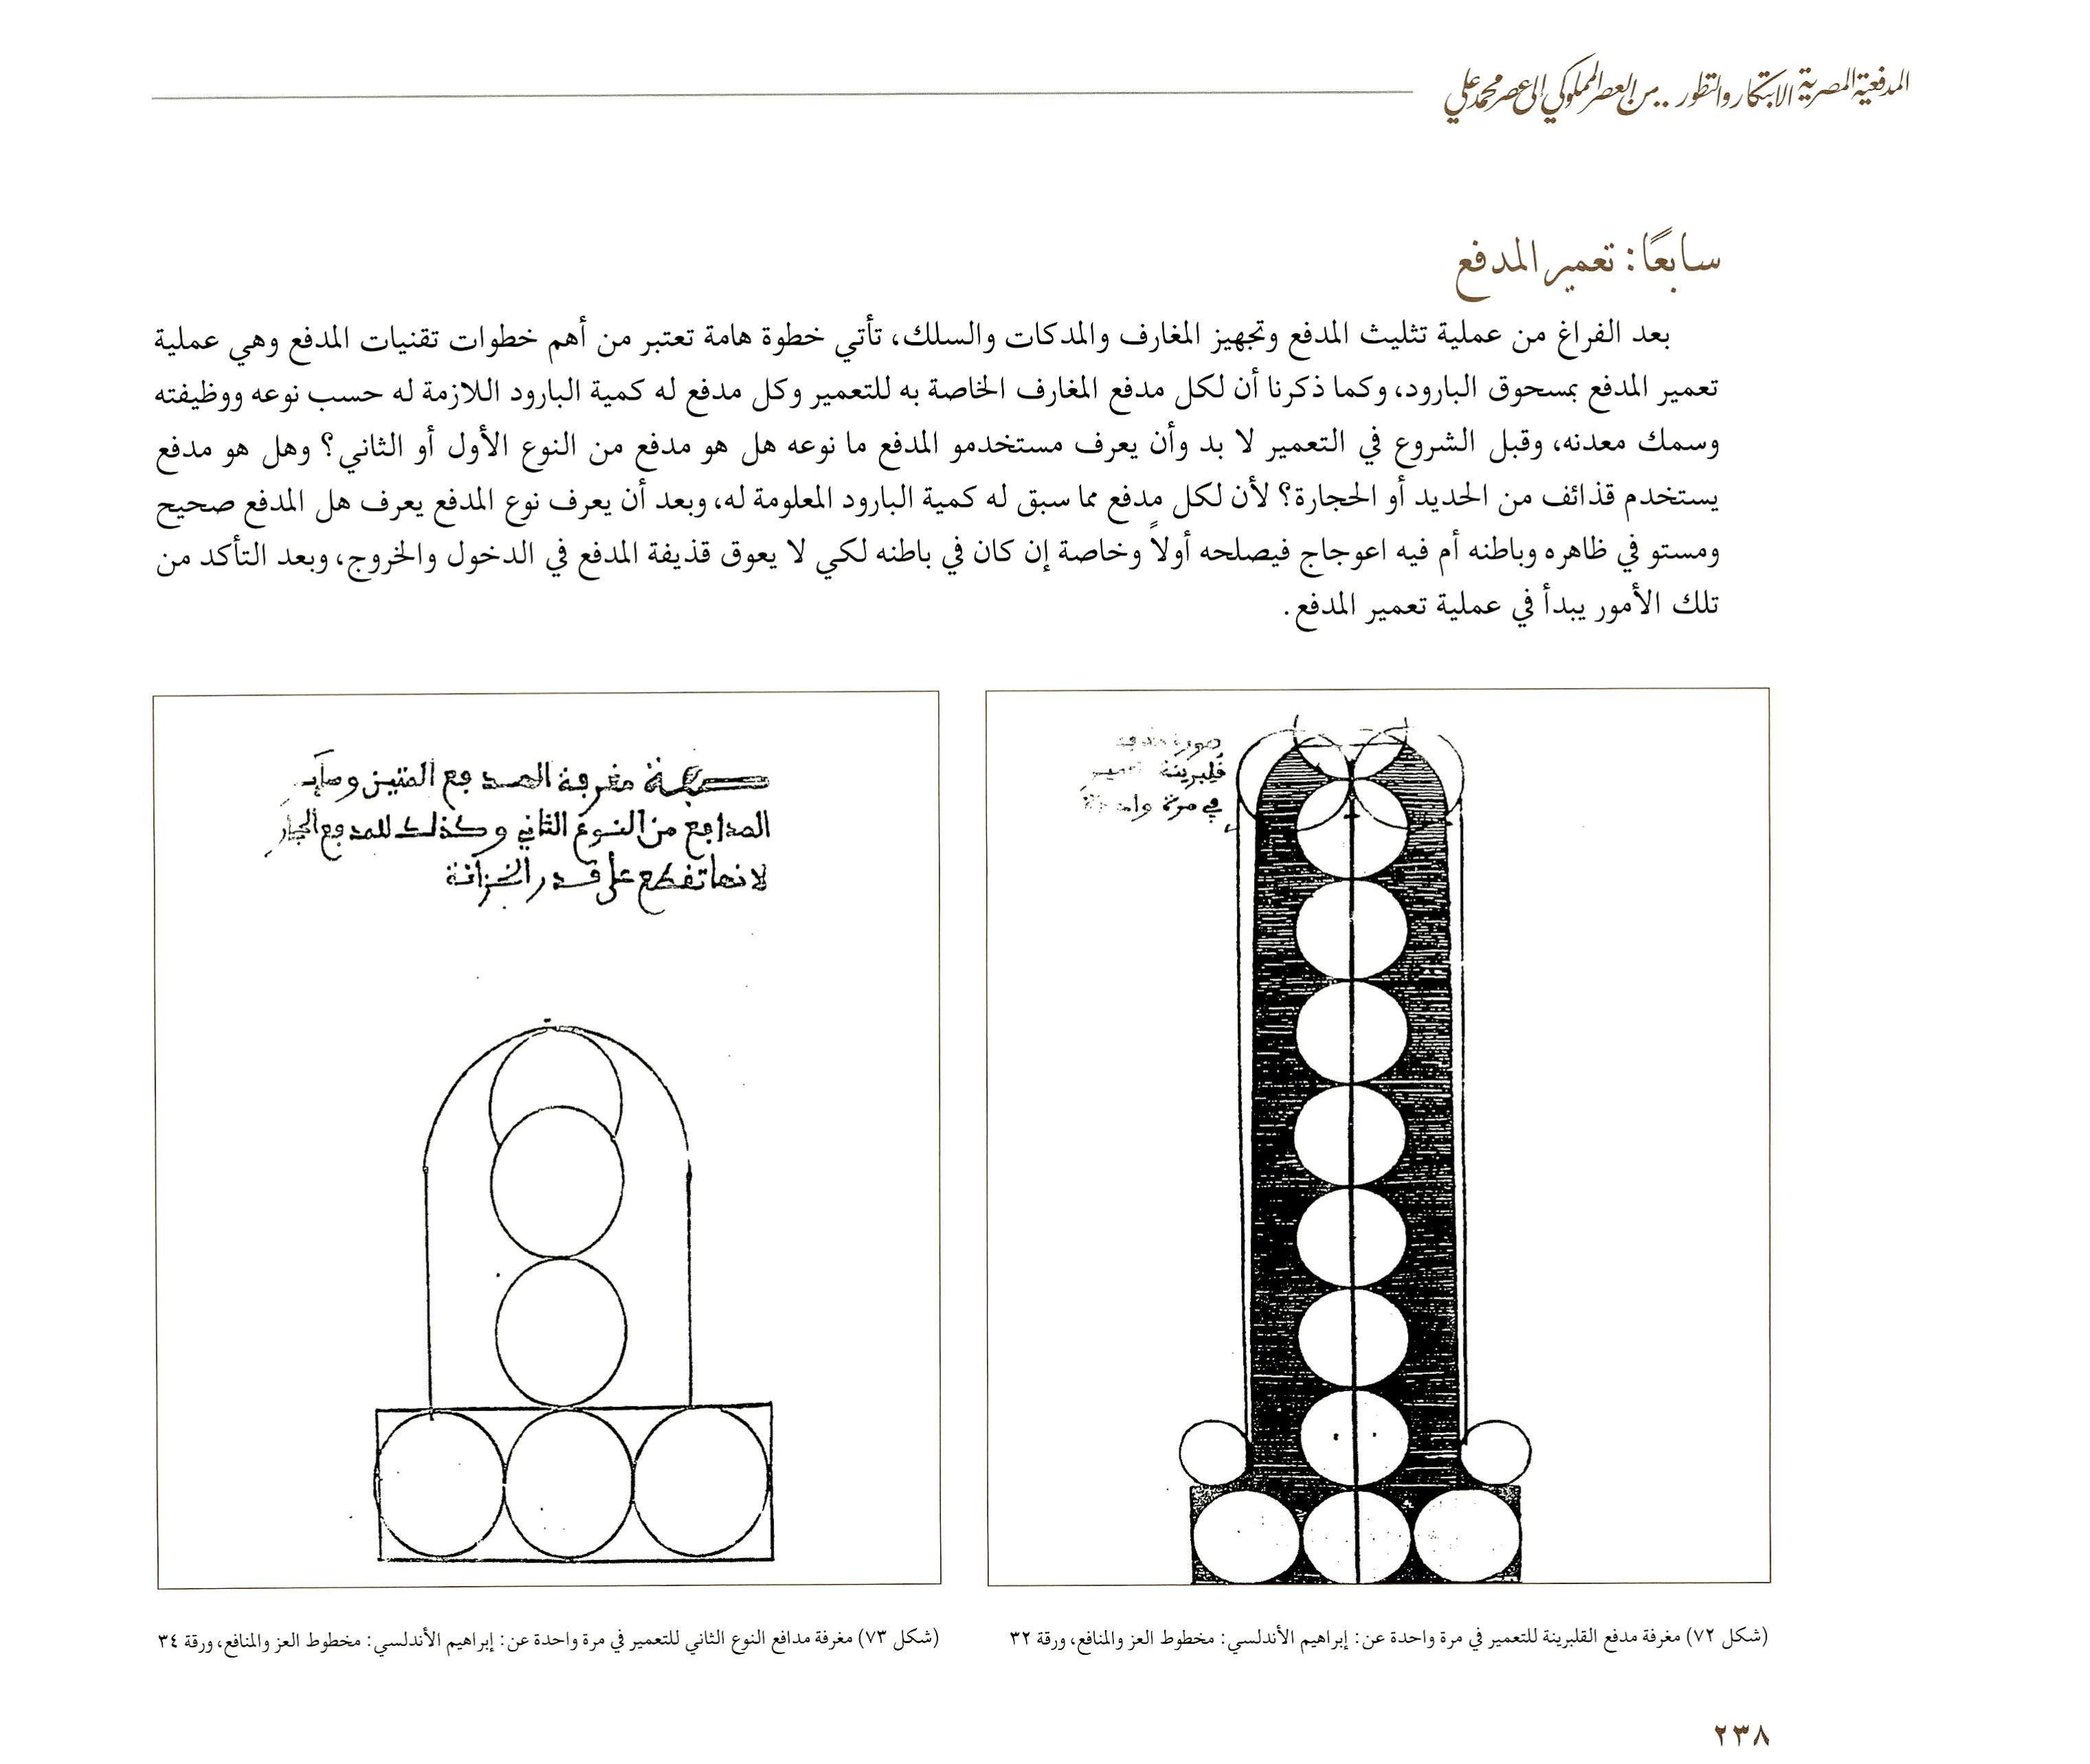 المدفعية المصرية الابتكار والتطور .. من العصر المملوكي إلى عصر محمد علي
سابعًا: تعمير المدفع
بعد الفراغ من عملية تثليث المدفع وتجهيز المغارف والمدكات والسلك، تأتي خطوة هامة تعتبر من أهم خطوات تقنيات المدفع وهي عملية
تعمير المدفع بمسحوق البارود، وكما ذكرنا أن لكل مدفع المغارف الخاصة به للتعمير وكل مدفع له كمية البارود اللازمة له حسب نوعه ووظيفته
وسمك معدنه، وقبل الشروع في التعمير لا بد وأن يعرف مستخدمو المدفع ما نوعه هل هو مدفع من النوع الأول أو الثاني؟ وهل هو مدفع
يستخدم قذائف من الحديد أو الحجارة؟ لأن لكل مدفع مما سبق له كمية البارود المعلومة له، وبعد أن يعرف نوع المدفع يعرف هل المدفع صحيح
ومستو في ظاهره وباطنه أم فيه اعوجاج فيصلحه أولاً وخاصة إن كان في باطنه لكي لا يعوق قذيفة المدفع في الدخول والخروج، وبعد التأكد من
تلك الأمور يبدأ في عملية تعمير المدفع.
قلبرينة
في مرة واحدة
مغرفة المدفع المتين
المدافع من النوع الثاني وكذلك للمدفع
لانها تقطع على قدر الخزانة
(شكل ٧٢) مغرفة مدفع القلبرينة للتعمير في مرة واحدة عن: إبراهيم الأندلسي: مخطوط العز والمنافع، ورقة ٣٢
(شكل ٧٣) مغرفة مدافع النوع الثاني للتعمير في مرة واحدة عن: إبراهيم الأندلسي: مخطوط العز والمنافع، ورقة ٣٤
٢٣٨